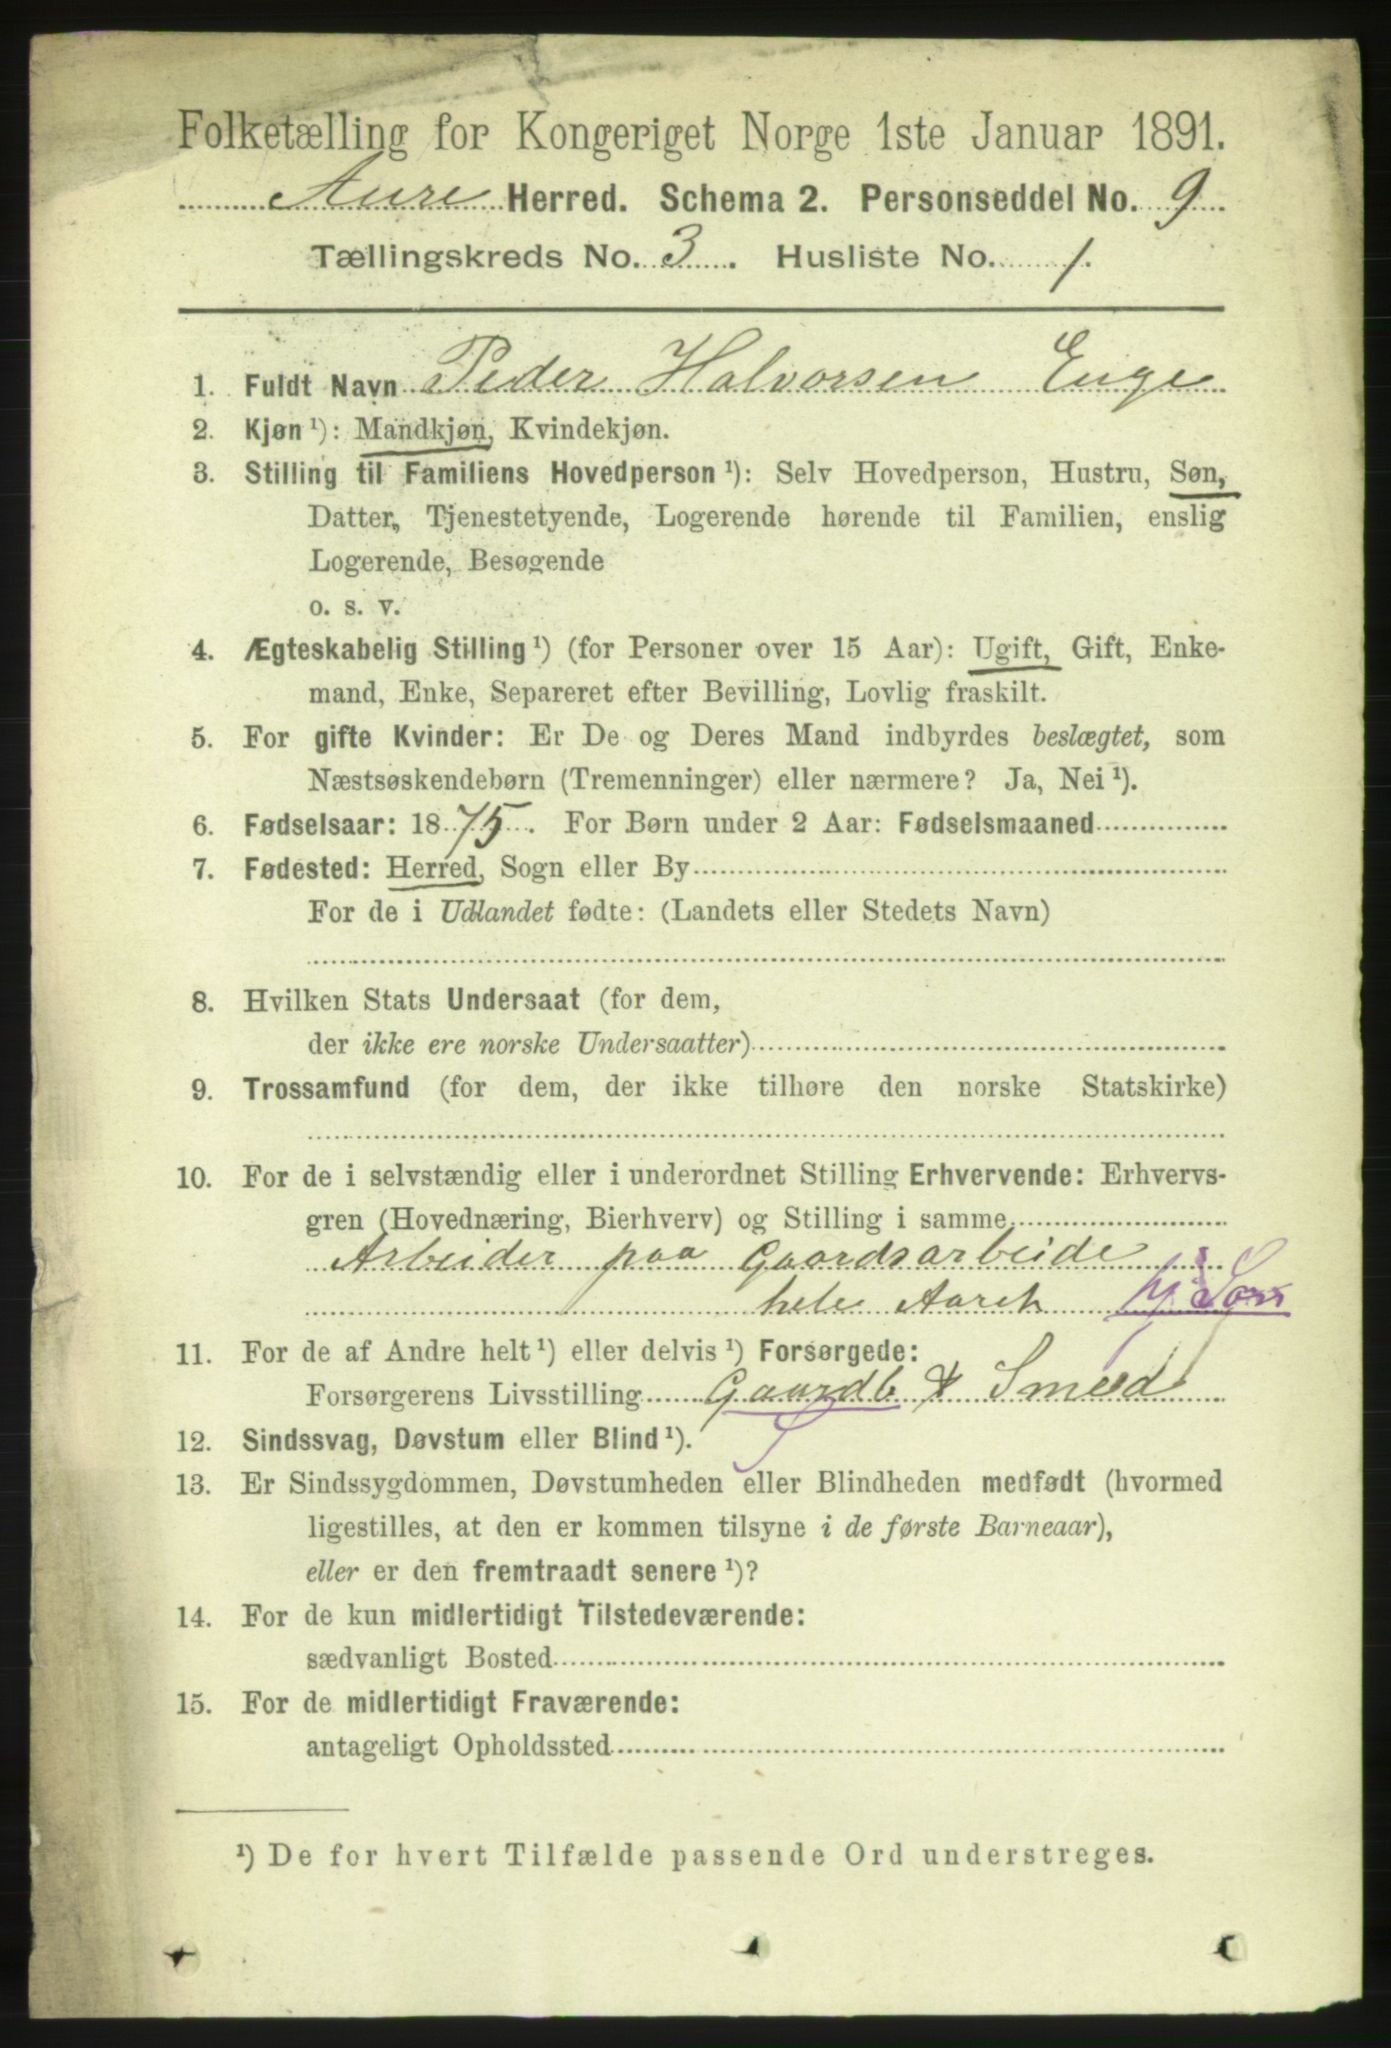 Folketælling for Kongeriget Norge 1ste Januar 1891.
Aure Herred. Schema 2. Personseddel No. 9
Tællingskreds No. 3. Husliste No. 1.
1. Fuldt Navn Peder Halvorsen Enge
2. Kjøn ¹): Mandkjøn, Kvindekjøn.
3. Stilling til Familiens Hovedperson ¹): Selv Hovedperson, Hustru, Søn,
Datter, Tjenestetyende, Logerende hørende til Familien, enslig
Logerende, Besøgende
o. s. v.
4. Ægteskabelig Stilling ¹) (for Personer over 15 Aar): Ugift, Gift, Enke-
mand, Enke, Separeret efter Bevilling, Lovlig fraskilt.
5. For gifte Kvinder: Er De og Deres Mand indbyrdes beslægtet, som
Næstsøskendebørn (Tremenninger) eller nærmere? Ja, Nei ¹).
6. Fødselsaar: 1875. For Børn under 2 Aar: Fødselsmaaned
7. Fødested: Herred, Sogn eller By
For de i Udlandet fødte: (Landets eller Stedets Navn)
8. Hvilken Stats Undersaat (for dem,
der ikke ere norske Undersaatter)
9. Trossamfund (for dem, der ikke tilhøre den norske Statskirke)
10. For de i selvstændig eller i underordnet Stilling Erhvervende: Erhvervs-
gren (Hovednæring, Bierhverv) og Stilling i samme
Arbeider paa Gaardsarbeide
hele Aaret
11. For de af Andre helt ¹) eller delvis ¹) Forsørgede:
Forsørgerens Livsstilling Gaardb & Smed
12. Sindssvag, Døvstum eller Blind ¹).
13. Er Sindssygdommen, Døvstumheden eller Blindheden medfødt (hvormed
ligestilles, at den er kommen tilsyne i de første Barneaar),
eller er den fremtraadt senere ¹)?
14. For de kun midlertidigt Tilstedeværende:
sædvanligt Bosted
15. For de midlertidigt Fraværende:
antageligt Opholdssted
¹) De for hvert Tilfælde passende Ord understreges.